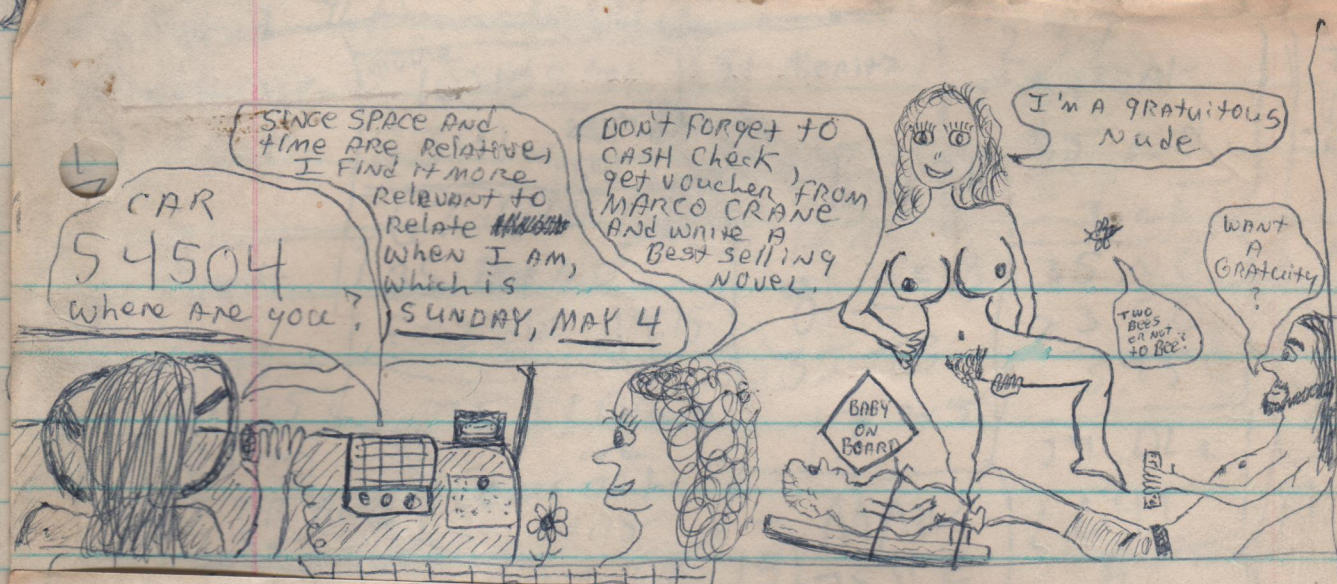 CAR
54504
where are you?
SINCE SPACE AND
time ARE RELATIVE,
I FIND it MORE
RELEVANT to
RELATE
when I AM,
which is
SUNDAY, MAY 4
DON'T FORGET to
CASH Check,
get voucher FROM
MARCO CRANE
AND write A
Best selling
NOVEL.
I'M A gRAtuitous
Nude
TWO
BEES
OR NOT
TO BEE?
WANT
A
GRATUITY
?
BABY
ON
BOARD